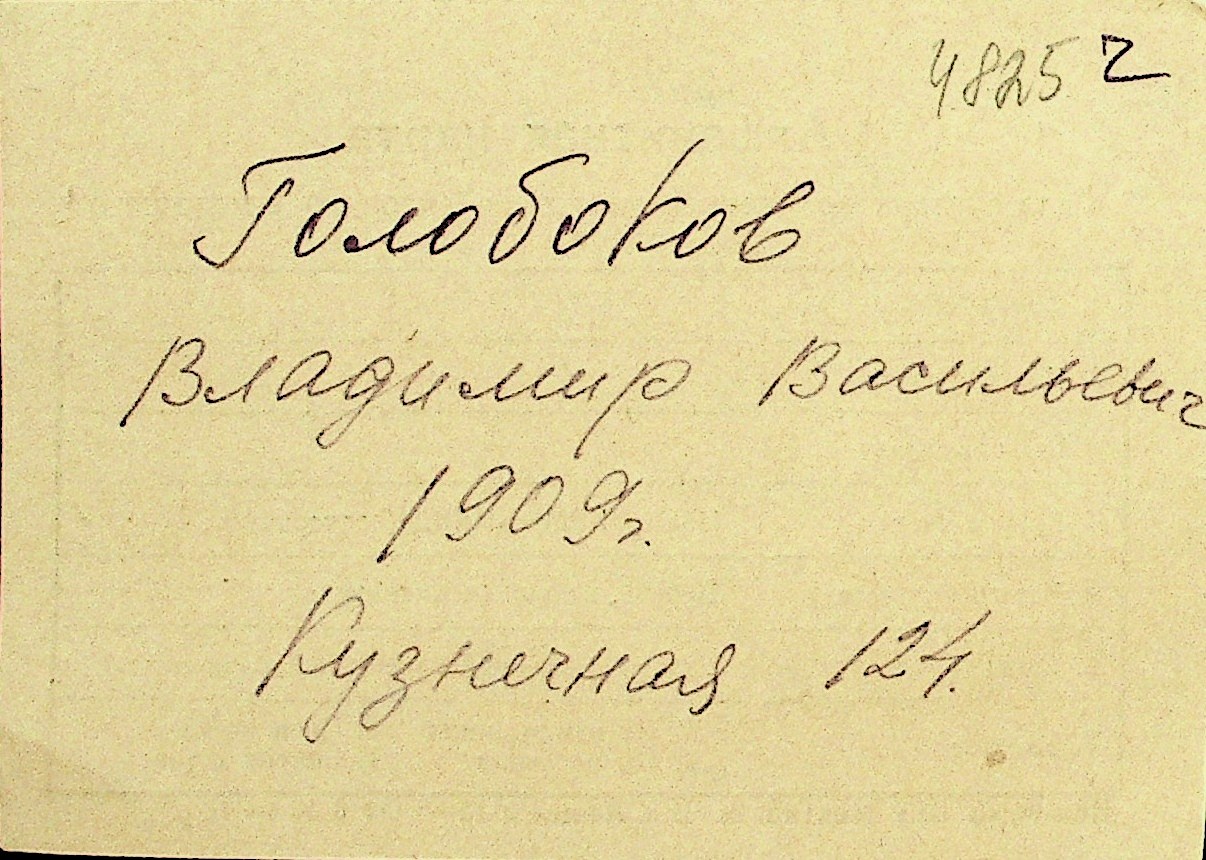 4825 г
Голобоков
Владимир Васильевич
1909г.
Кузнечная 124.